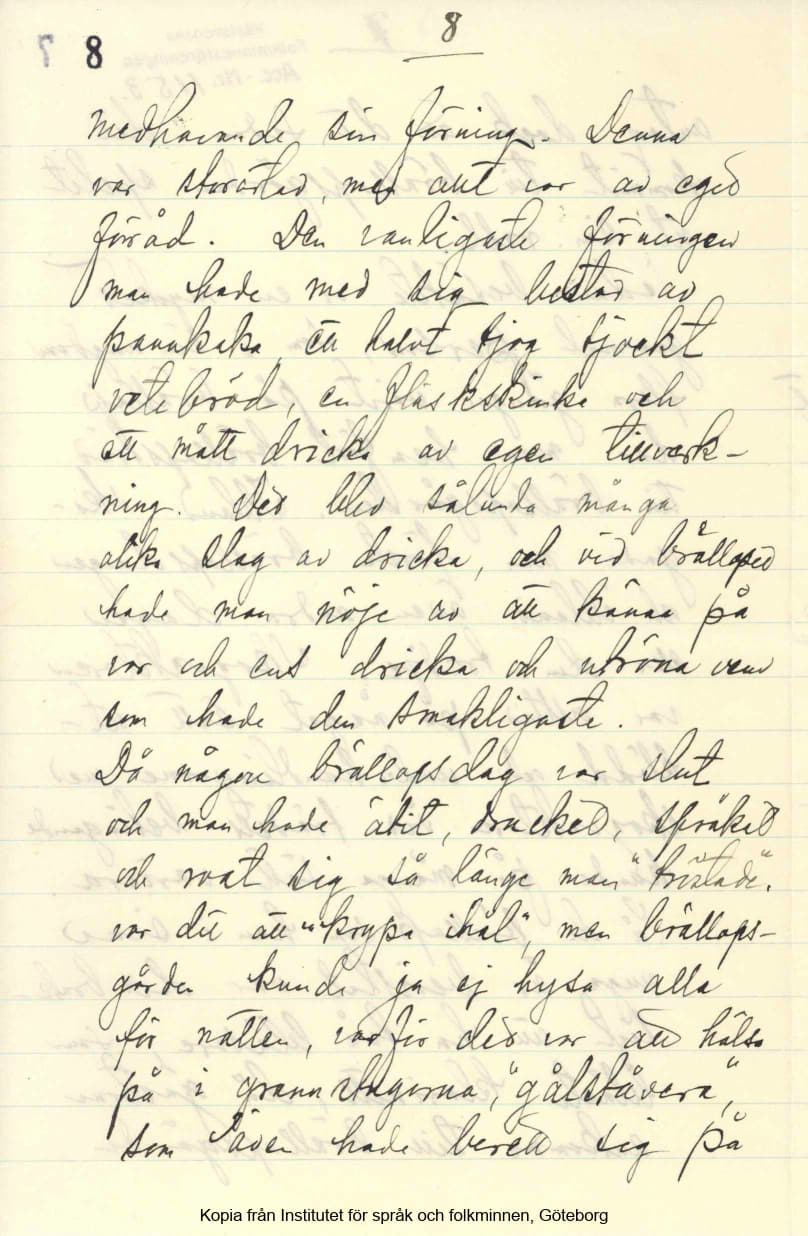 8
8
medhavande sin förning. Denna
var storartad, men allt var av eget
föråd. Den vanligaste förningen
man hade med sig bestod av
pannkaka ett halvt tjog tjockt
vetebröd, en fläskskinka och
ett mått dricka av egen tillverk-
ning. Det blev sålunda många
olika slag av dricka, och vid bröllopet
hade man nöje av att känna på
var och ens dricka och utröna vem
som hade den smakligaste.
Då någon bröllopsdag var slut
och man hade ätit, druckit, språkat
och roat sig så länge man "tröstade",
var det att "krypa ihål", men bröllops-
gården kunde ju ej hysa alla
för natten, varför det var att hälsa
på i grannstugorna, "gålståvera",
som även hade berett sig på
Kopia från Institutet för språk och folkminnen, Göteborg